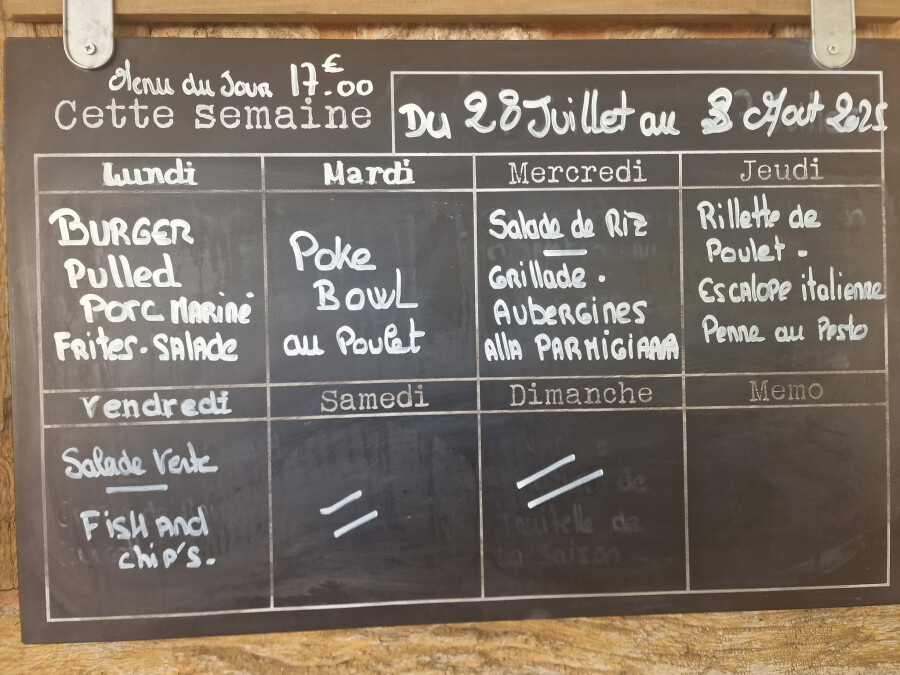 Menu du Jour 17.€00
Cette semaine
Du 28 Juillet au 3 Aout 2025
Lundi
Mardi
Mercredi
Jeudi
BURGER
Pulled
Porc MARINÉ
FRITES. SALADE
Poke
BOWL
au Poulet
Salade de Riz
GRILLADE.
AUBERGINES
AllA PARMIGIANA
Rillette de
Poulet.
ESCALOPE italienne
Penne au Pesto
Vendredi
Samedi
Dimanche
Memo
Salade Verte
FISH AND
CHIP'S.